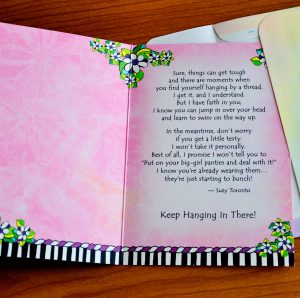 Sure, things can get tough
and there are moments when
you find yourself hanging by a thread.
I get it, and I understand.
But I have faith in you;
I know you can jump in over your head
and learn to swim on the way up.
In the meantime, don't worry
if you get a little testy.
I won't take it personally.
Best of all, I promise I won't tell you to
"Put on your big-girl panties and deal with it!"
I know you're already wearing them...
they're just starting to bunch!
— Suzy Toronto
Keep Hanging In There!